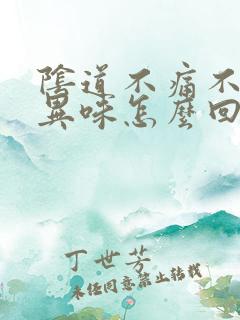 陰道不痛不
異味怎麼回
丁世芳
未经同意禁止转载